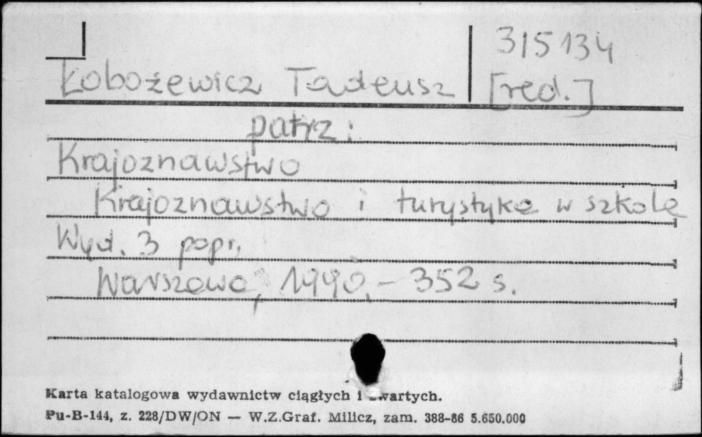 315134
Łobożewicz Tadeusz [red.]
patrz:
Krajoznawstwo
Krajoznawstwo i turystyka w szkole
Wyd. 3 popr.
Warszawa, 1990. - 352 s.
Karta katalogowa wydawnictw ciągłych i zwartych.
Pu-B-144, z. 228/DW/ON — W.Z.Graf. Milicz, zam. 388-86 5.650.000